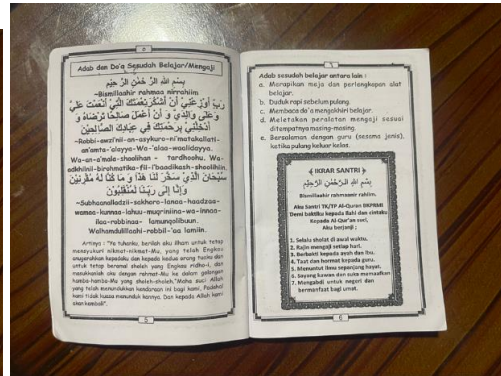 Adab dan Do'a Sesudah Belajar/Mengaji
بِسْمِ اللهِ الرَّحْمَنِ الرَّحِيْمِ
~Bismillaahir rahmaa nirrahiim
رَبِّ أَوْزِعْنِيْ أَنْ أَشْكُرَ نِعْمَتَكَ الَّتِيْ أَنْعَمْتَ عَلَيَّ
وَعَلَى وَالِدَيَّ وَ أَنْ أَعْمَلَ صَالِحًا تَرْضَاهُ وَ
أَدْخِلْنِيْ بِرَحْمَتِكَ فِي عِبَادِكَ الصَّالِحِيْنَ
~Robbi-awzi'nii-an-asykuro-ni'matakallati-
an'amta-'alayya-Wa-'alaa-waalidayya.
Wa-an-a'mala-shoolihan - tardhoohu. Wa-
adkhilnii-birohmatika-fii-i'baadikash-shoolihiin.
سُبْحَانَ الَّذِيْ سَخَّرَ لَنَا هَذَا وَ مَا كُنَّا لَهُ مُقْرِنِيْنَ
وَإِنَّا إِلَى رَبِّنَا لَمُنْقَلِبُوْنَ
~Subhaanalladzii-sakhoro-lanaa-haadzaa-
wamaa-kunnaa-lahuu-muqriniina-wa-innaa-
ilaa-robbinaa- lamunqolibuun.
Walhamdulillaahi-robbil-'aa lamiin.
Artinya : "Ya tuhanku, berilah aku ilham untuk tetap
mensyukuri nikmat-nikmat-Mu, yang telah Engkau
anugerahkan kepadaku dan kepada kedua orang tuaku dan
untuk tetap beramal sholeh yang Engkau ridho-i, dan
masukkanlah aku dengan rahmat-Mu ke dalam golongan
hamba-hamba-Mu yang sholeh-sholeh."Maha suci Allah
yang telah menundukkan kendaraan ini bagi kami, Padahal
kami tidak kuasa menunduk kannya. Dan kepada Allah kami
akan kembali".
5
Adab sesudah belajar antara lain :
a. Merapikan meja dan perlengkapan alat
belajar.
b. Duduk rapi sebelum pulang.
c. Membaca do'a mengakhiri belajar.
d. Meletakan peralatan mengaji sesuai
ditempatnya masing-masing.
e. Bersalaman dengan guru (sesama jenis),
ketika pulang keluar kelas.
IKRAR SANTRI
بِسْمِ اللهِ الرَّحْمَنِ الرَّحِيْمِ
Bismillaahir rahmaanir rahiim.
Aku Santri TK/TP Al-Quran BKPRMI
Demi baktiku kepada Ilahi dan cintaku
Kepada Al-Qur'an suci,
Aku berjanji ;
1. Selalu sholat di awal waktu.
2. Rajin mengaji setiap hari.
3. Berbakti kepada ayah dan ibu.
4. Taat dan hormat kepada guru.
5. Menuntut ilmu sepanjang hayat.
6. Sayang kawan dan suka memaafkan
7. Mengabdi untuk negeri dan
bermanfaat bagi umat.
6